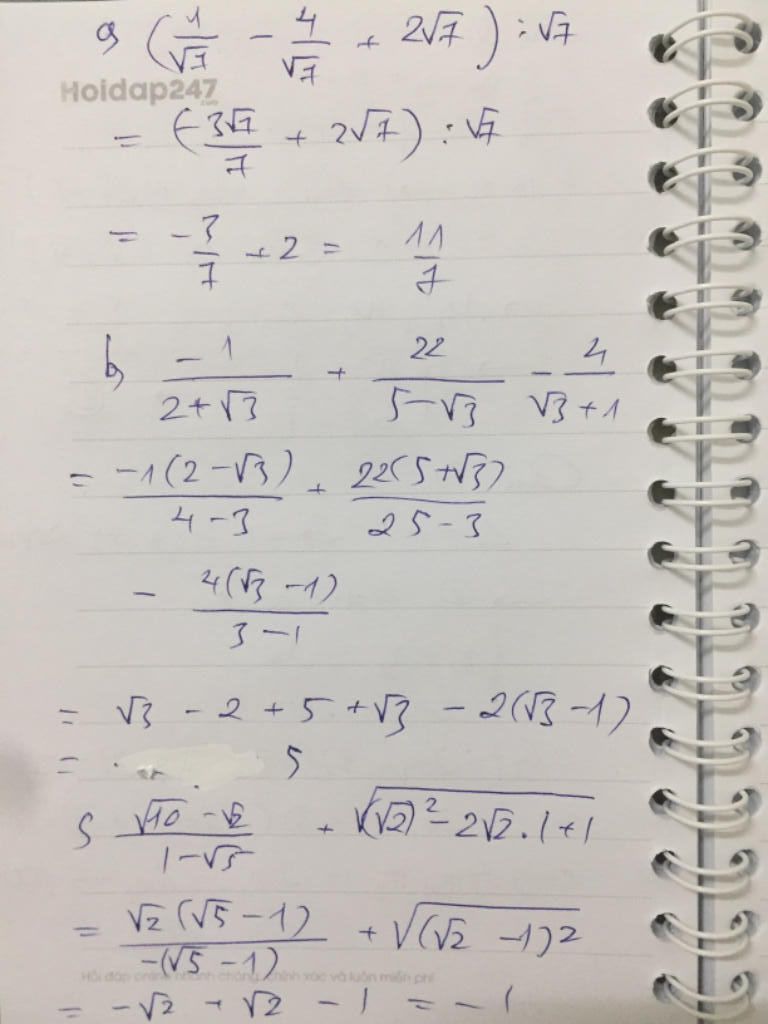 a, (1/√7 - 4/√7 + 2√7) : √7
Hoidap247
.com
= (-3√7/7 + 2√7) : √7
= -3/7 + 2 = 11/7
b, -1/(2+√3) + 22/(5-√3) - 4/(√3+1)
= -1(2-√3)/(4-3) + 22(5+√3)/(25-3)
- 4(√3-1)/(3-1)
= √3 - 2 + 5 + √3 - 2(√3-1)
= 5
c, (√10-√2)/(1-√5) + √((√2)² - 2√2.1+1)
= √2(√5-1)/-(√5-1) + √((√2-1)²)
Hỏi đáp online nhanh chóng, chính xác và luôn miễn phí
= -√2 + √2 - 1 = -1